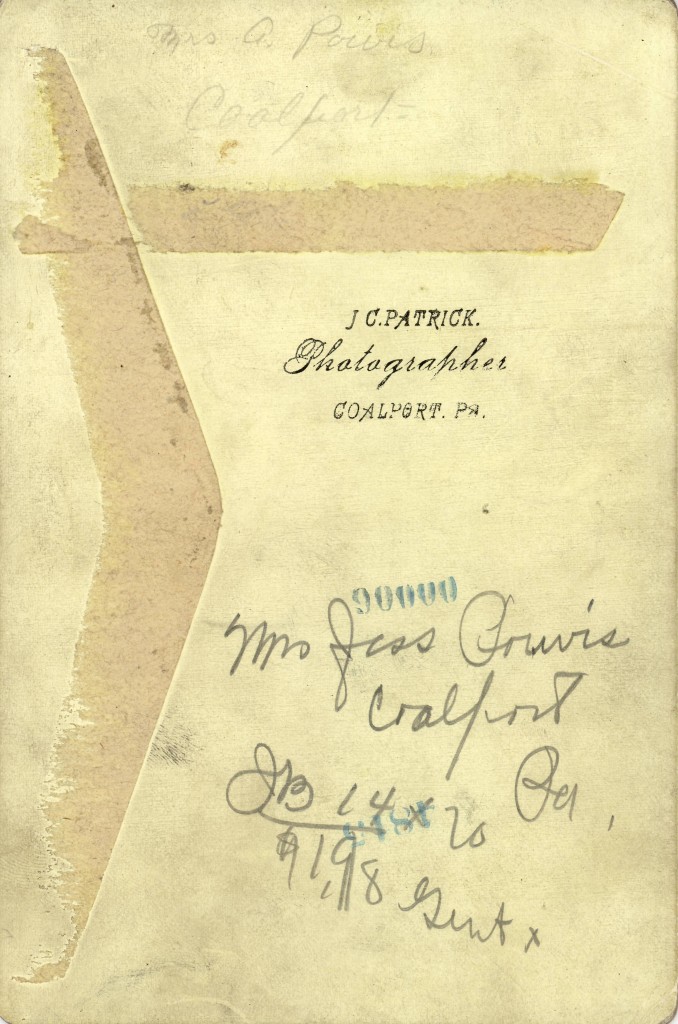 Mrs A. Powis
Coalport
J C. PATRICK.
Photographer
COALPORT. PA.
90000
Mrs Jess Powis
Coalport
Pa,
JB 14 x 20
1.98 Gent x